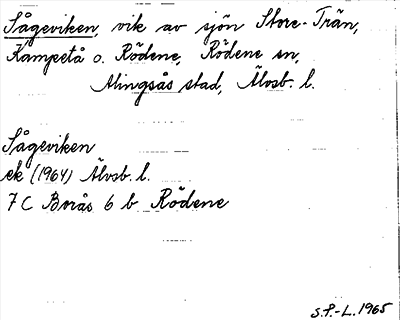 Sågeviken, vik av sjön Store-Trän,
Kampetå o. Rödene, Rödene sn,
Alingsås stad, Älvsb. l.
Sågeviken
ek (1964) Älvsb. l.
7 C Borås 6 b Rödene
S.P.-L. 1965